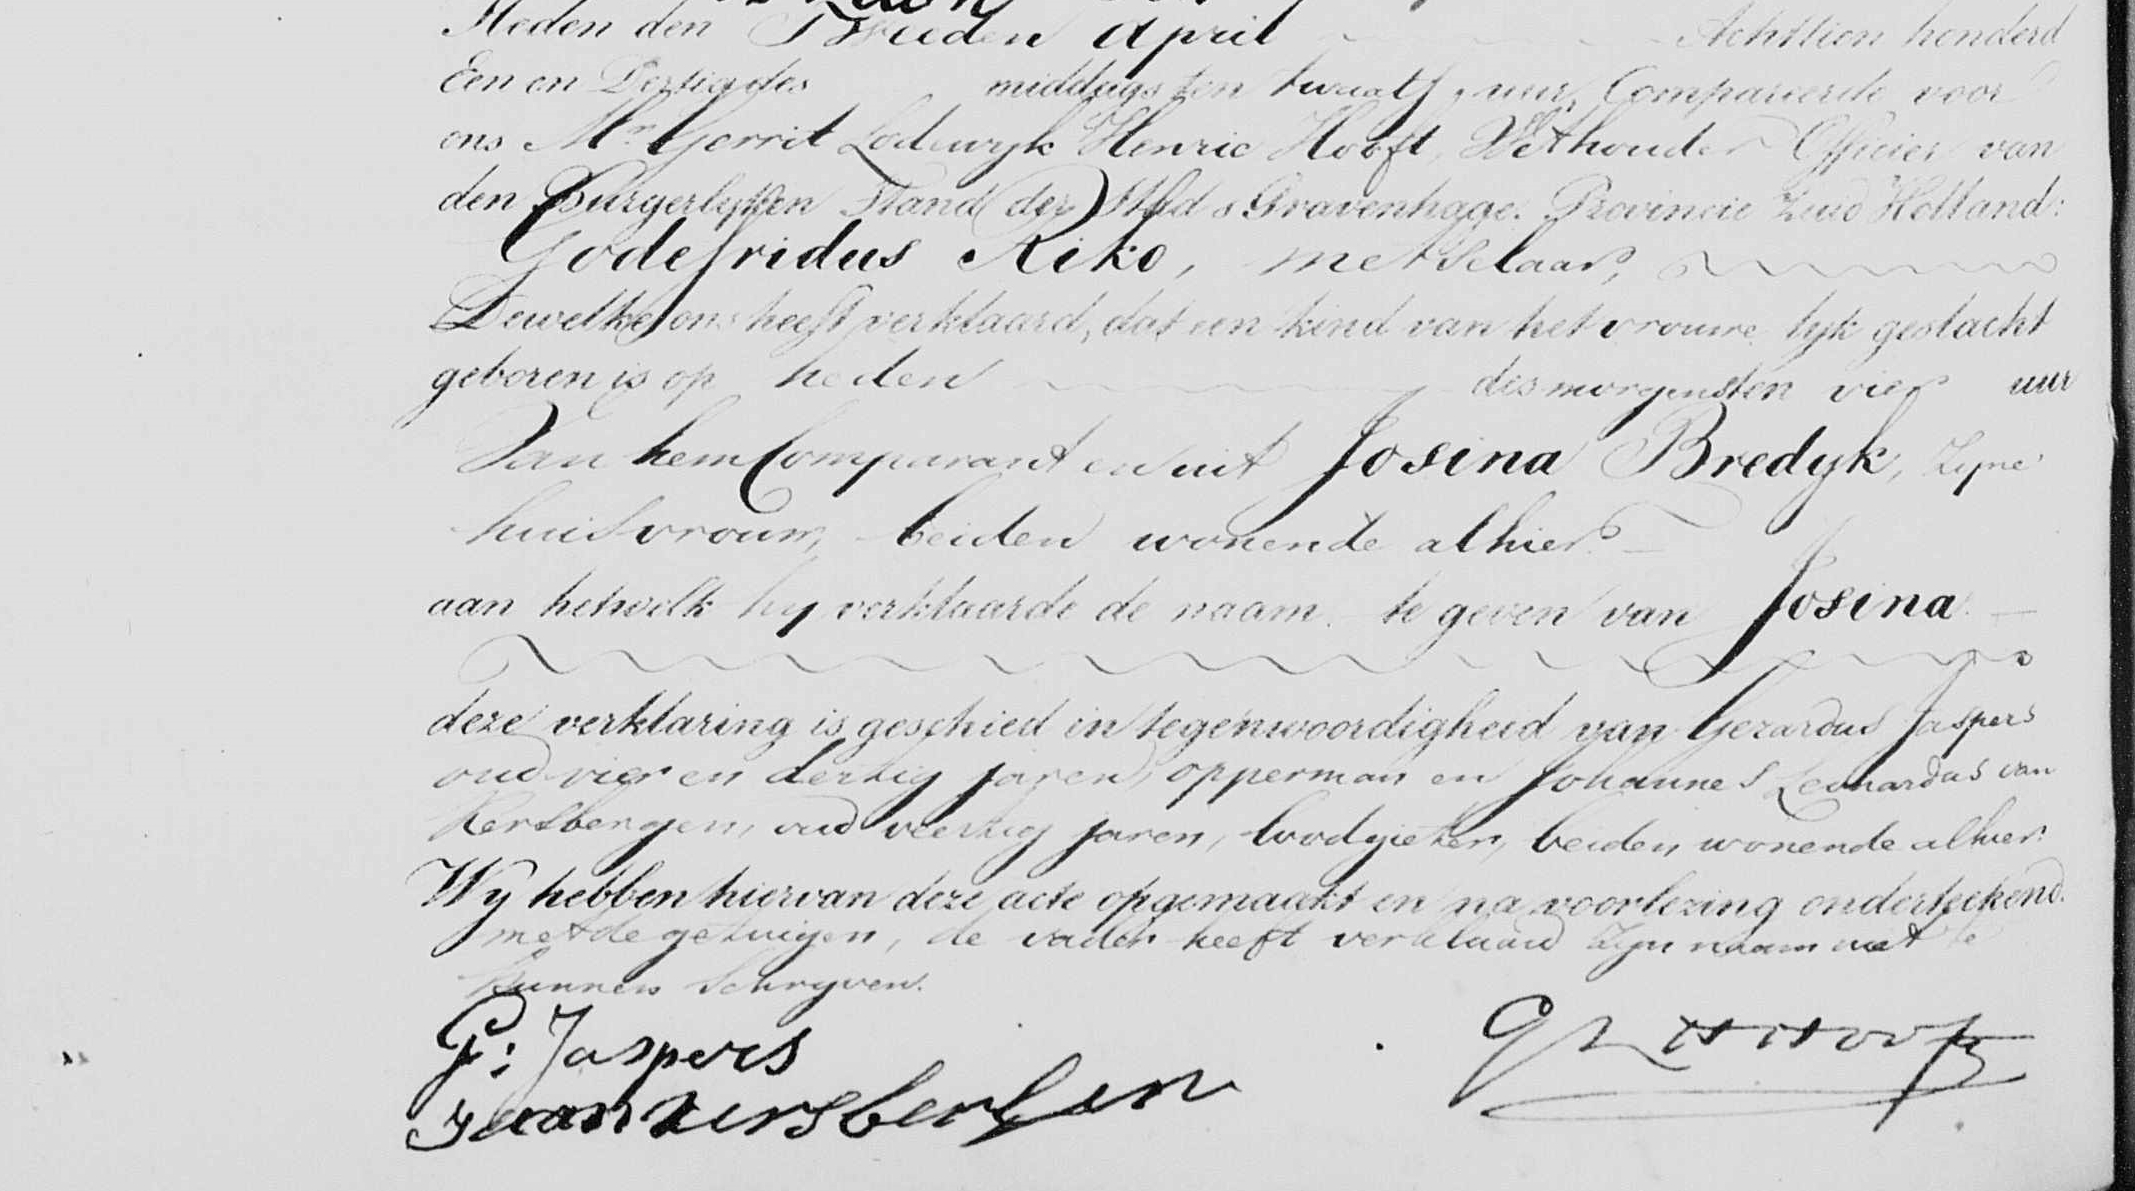 Heden den Tweeden April Achttien honderd
Een en Dertig des middags ten twaalf uur, Compareerde voor
ons Mr. Gerrit Lodewyk Henric Hooft, Wethouder Officier van
den Burgerlyken Stand der Stad s Gravenhage. Provincie Zuid Holland:
Godefridus Riko, metselaar,
Dewelke ons heeft verklaard, dat een kind van het vrouwe lyk geslacht
geboren is op heden des morgens ten vier uur
Van hem Comparant en uit Josina Bredyk, zyne
huisvrouw, beiden wonende alhier
aan hetwelk hy verklaarde de naam te geven van Josina
deze verklaring is geschied in tegenwoordigheid van Gerardus Jaspers
oud vier en dertig jaren, opperman en Johannes Leonardus van
Kersbergen, oud veertig jaren, loodgieter, beiden wonende alhier.
Wy hebben hiervan deze acte opgemaakt en na voorlezing onderteekend.
met de getuigen, de vader heeft verklaard zyn naam niet te
kunnen schryven.
G: Jaspers
J van kersbergen
G L H Hooft